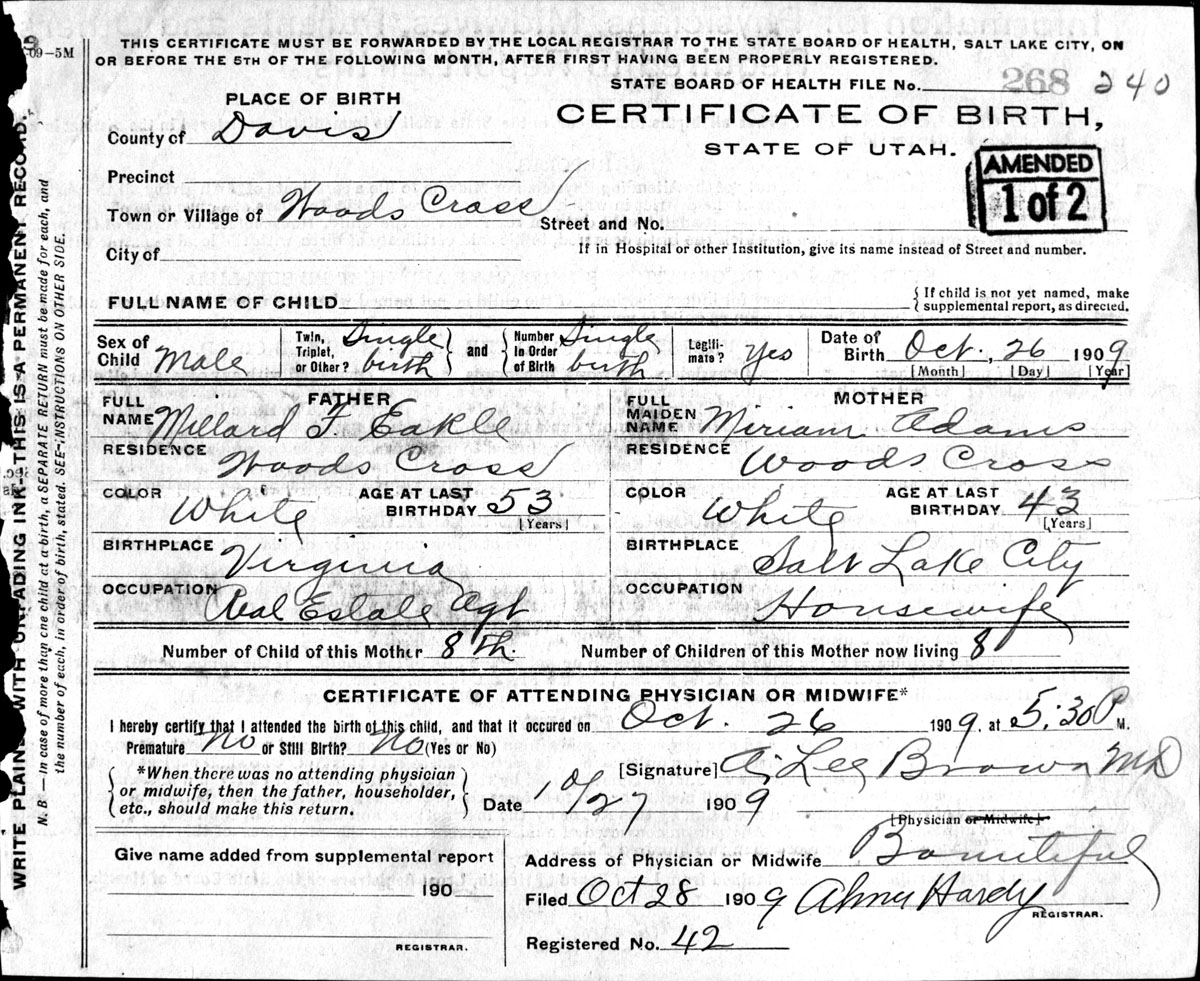 09-5M
THIS CERTIFICATE MUST BE FORWARDED BY THE LOCAL REGISTRAR TO THE STATE BOARD OF HEALTH, SALT LAKE CITY, ON
OR BEFORE THE 5TH OF THE FOLLOWING MONTH, AFTER FIRST HAVING BEEN PROPERLY REGISTERED.
STATE BOARD OF HEALTH FILE No. 268 240
PLACE OF BIRTH
CERTIFICATE OF BIRTH,
County of Davis
STATE OF UTAH.
AMENDED
1 of 2
Precinct
Town or Village of Woods Cross Street and No.
City of
If in Hospital or other Institution, give its name instead of Street and number.
FULL NAME OF CHILD { If child is not yet named, make
supplemental report, as directed.
Sex of Child Male Twin, Triplet, or Other? Single birth } and { Number in Order of Birth Single birth Legiti-mate? Yes Date of Birth Oct. 26 1909
[Month] [Day] [Year]
FATHER MOTHER
FULL NAME Millard F. Eakle FULL MAIDEN NAME Miriam Adams
RESIDENCE Woods Cross RESIDENCE Woods Cross
COLOR White AGE AT LAST BIRTHDAY 53 [Years] COLOR White AGE AT LAST BIRTHDAY 43 [Years]
BIRTHPLACE Virginia BIRTHPLACE Salt Lake City
OCCUPATION Real Estate Agt OCCUPATION Housewife
Number of Child of this Mother 8th. Number of Children of this Mother now living 8
CERTIFICATE OF ATTENDING PHYSICIAN OR MIDWIFE*
I hereby certify that I attended the birth of this child, and that it occured on Oct. 26 1909. at 5:30 P M.
Premature No or Still Birth? No (Yes or No)
{ *When there was no attending physician
or midwife, then the father, householder,
etc., should make this return. }
[Signature] Lee Brown MD
Date 10/27 1909
[Physician or Midwife]
Give name added from supplemental report
190
REGISTRAR.
Address of Physician or Midwife Bountiful
Filed Oct 28 1909 Alma Hardy
REGISTRAR.
Registered No. 42
WRITE PLAINLY WITH UNFADING INK-THIS IS A PERMANENT RECORD.
N. B — In case of more than one child at a birth, a SEPARATE RETURN must be made for each, and
the number of each, in order of birth, stated. SEE INSTRUCTIONS ON OTHER SIDE.